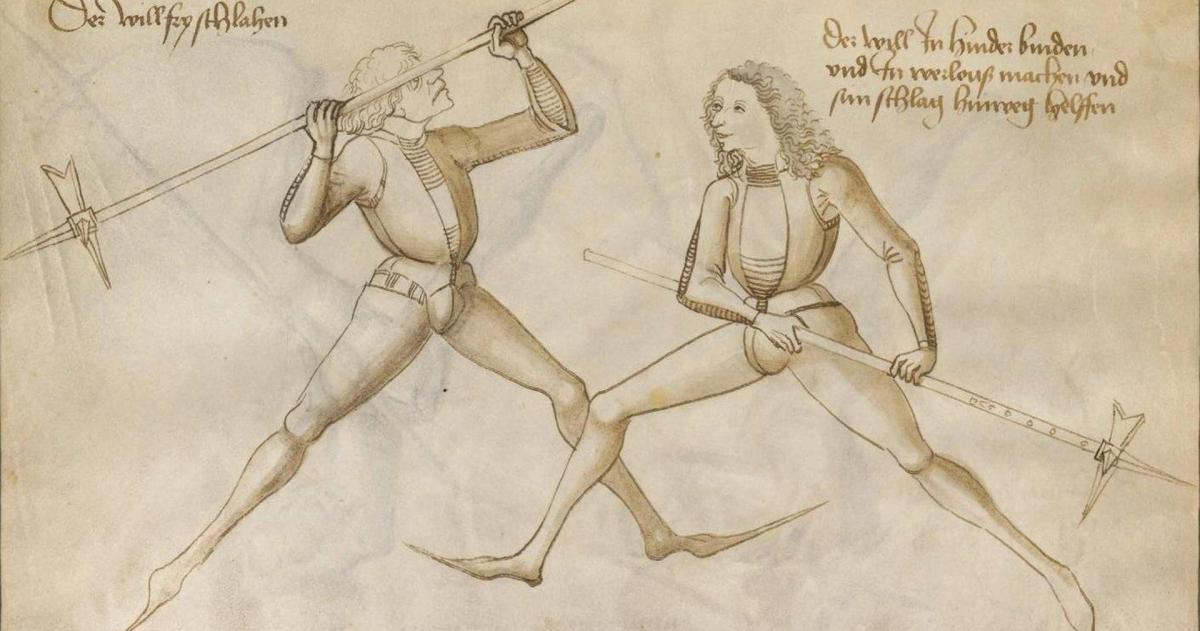 Der will fry schlahen
der will In hinder binden
vnd In werlouß machen vnd
sin schlag hinweg helffen